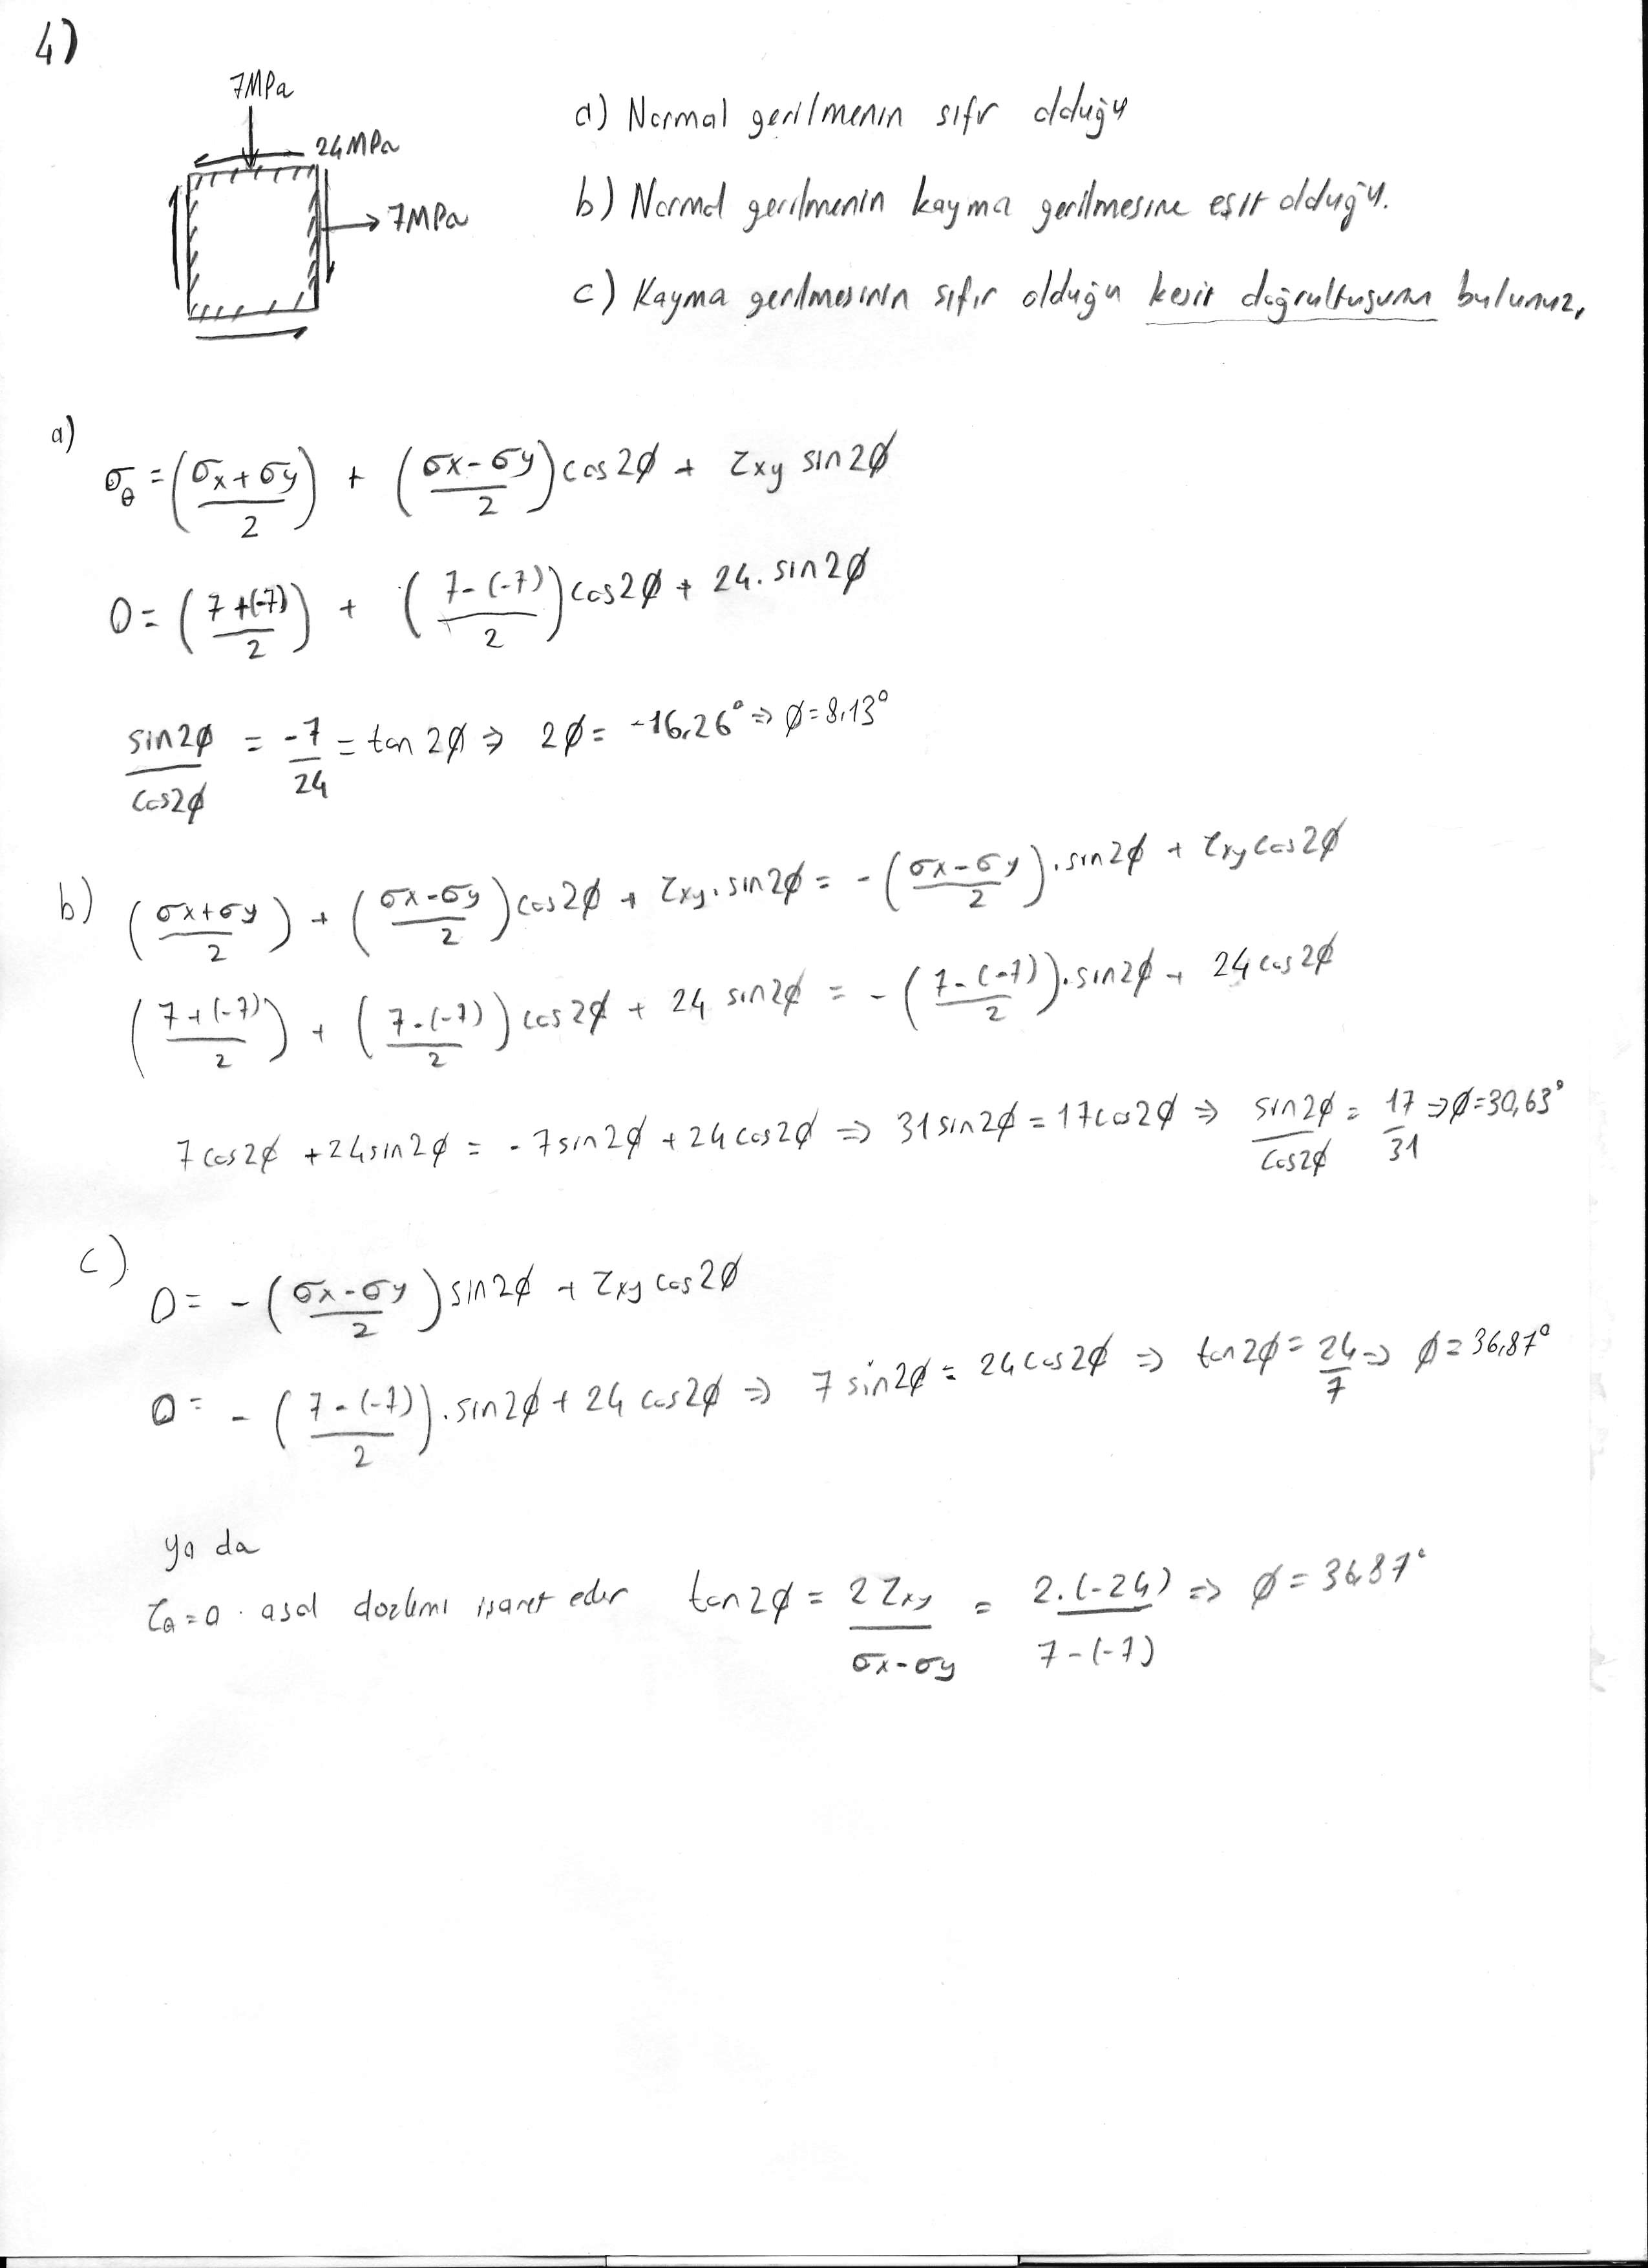 4)
7MPa
24MPa
7MPa
a) Normal gerilmenin sıfır olduğu
b) Normal gerilmenin kayma gerilmesine eşit olduğu.
c) Kayma gerilmesinin sıfır olduğu kesit doğrultusunu bulunuz,
a)
σθ = (σx+σy / 2) + (σx-σy / 2) cos2φ + τxy sin2φ
0 = (7+(-7) / 2) + (7-(-7) / 2) cos2φ + 24. sin2φ
sin2φ / cos2φ = -7 / 24 = tan 2φ ⇒ 2φ = -16,26° ⇒ φ=8,13°
b) (σx+σy / 2) + (σx-σy / 2) cos2φ + τxy. sin2φ = - (σx-σy / 2). sin2φ + τxy cos2φ
(7+(-7) / 2) + (7-(-7) / 2) cos2φ + 24 sin2φ = - (7-(-7) / 2). sin2φ + 24 cos2φ
7 cos2φ + 24 sin2φ = - 7 sin2φ + 24 cos2φ ⇒ 31 sin2φ = 17 cos2φ ⇒ sin2φ / cos2φ = 17 / 31 ⇒ φ=30,63°
c)
0 = - (σx-σy / 2) sin2φ + τxy cos2φ
0 = - (7-(-7) / 2). sin2φ + 24 cos2φ ⇒ 7 sin2φ = 24 cos2φ ⇒ tan2φ = 24 / 7 ⇒ φ = 36,87°
ya da
τθ = 0 . asal düzlemi işaret eder tan2φ = 2τxy / σx-σy = 2.(-24) / 7-(-7) ⇒ φ = 36,87°